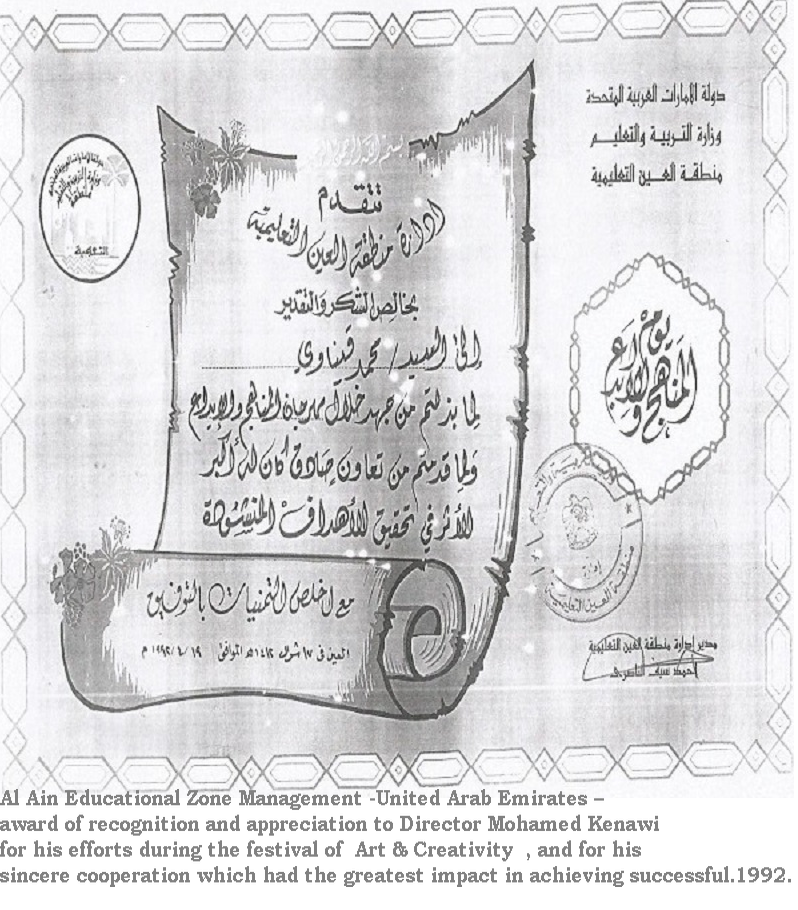 دولة الامارات العربية المتحدة
وزارة التربية والتعليم
منطقة العين التعليمية
بسم الله الرحمن الرحيم
تتقدم
ادارة منطقة العين التعليمية
بخالص الشكر والتقدير
إلى السيد / محمد قيناوي
لما بذلتم من جهد خلال مهرجان المناهج والإبداع
ولما قدمتم من تعاون صادق كان له أكبر
الأثر في تحقيق الأهداف المنشودة
مع اخلص التمنيات بالتوفيق
العين في ١٧ شوال ١٤١٢هـ الموافق ١٩ / ٤ / ١٩٩٢ م
يوم
المنهج والإبداع
إدارة
منطقة العين التعليمية
مدير إدارة منطقة العين التعليمية
أحمد سيف الناصري
التعليمية
Al Ain Educational Zone Management -United Arab Emirates –
award of recognition and appreciation to Director Mohamed Kenawi
for his efforts during the festival of Art & Creativity , and for his
sincere cooperation which had the greatest impact in achieving successful.1992.